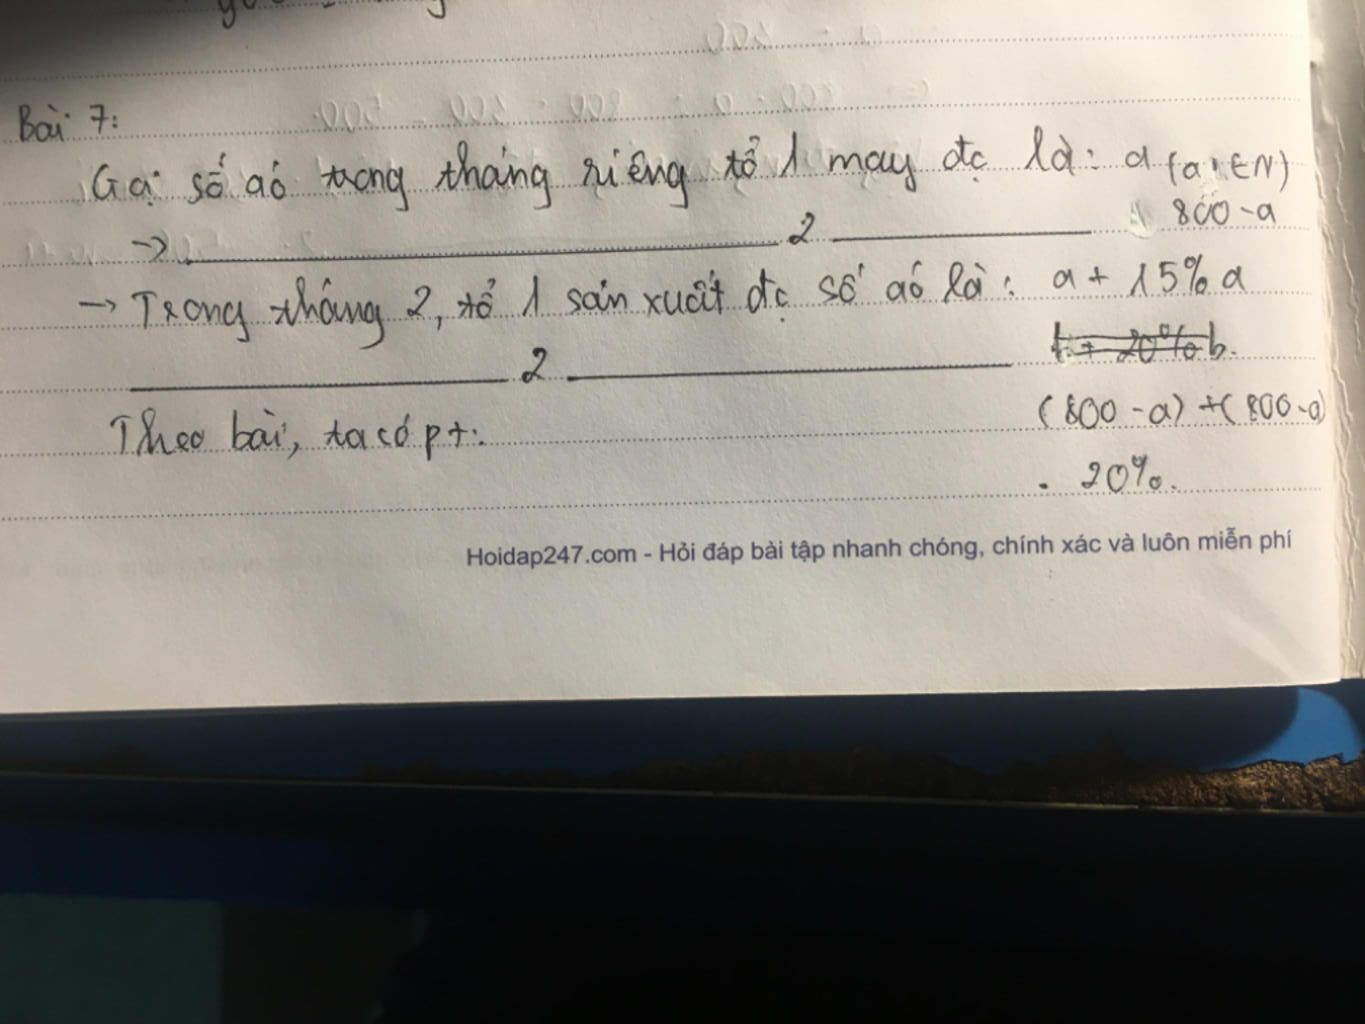 Bài 7:
Gọi số áo trong tháng riêng tổ 1 may đc là: a (a ∈ N)
→ 2 800 - a
→ Trong tháng 2, tổ 1 sản xuất đc số áo là: a + 15% a
2
Theo bài, ta có pt: (800 - a) + (800 - a)
. 20%.
Hoidap247.com - Hỏi đáp bài tập nhanh chóng, chính xác và luôn miễn phí